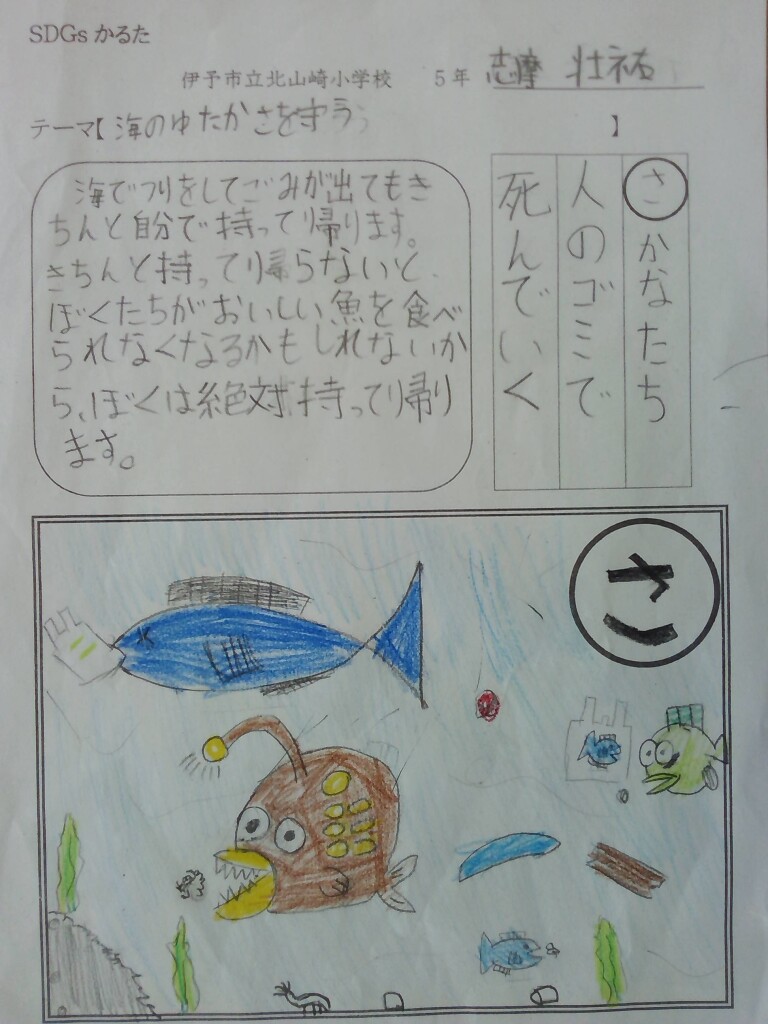 SDGs かるた
伊予市立北山崎小学校 5年 志摩 壮祐
テーマ【海のゆたかさを守ろう】
さかなたち
人のゴミで
死んでいく
海でつりをしてごみが出てもき
ちんと自分で持って帰ります。
きちんと持って帰らないと、
ぼくたちがおいしい魚を食べ
られなくなるかもしれないか
ら、ぼくは絶対持って帰り
ます。
さ